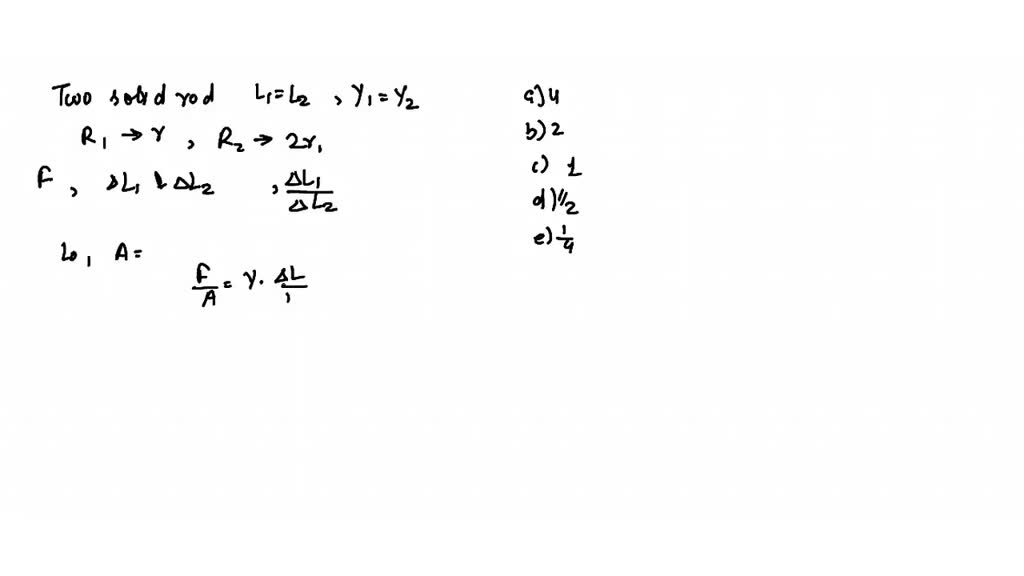 Two solid rod L₁=L₂ , Y₁=Y₂
R₁ → r , R₂ → 2r₁
F , ΔL₁ & ΔL₂ , ΔL₁/ΔL₂
L₀, A=
F/A = Y. ΔL/
a) 4
b) 2
c) 1
d) 1/2
e) 1/4